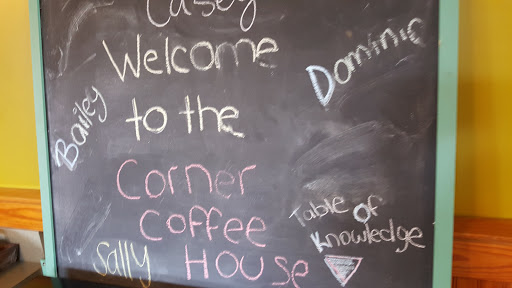 Casey
Welcome
to the
Corner
Coffee
House
Bailey
Dominic
Sally
Table of
Knowledge